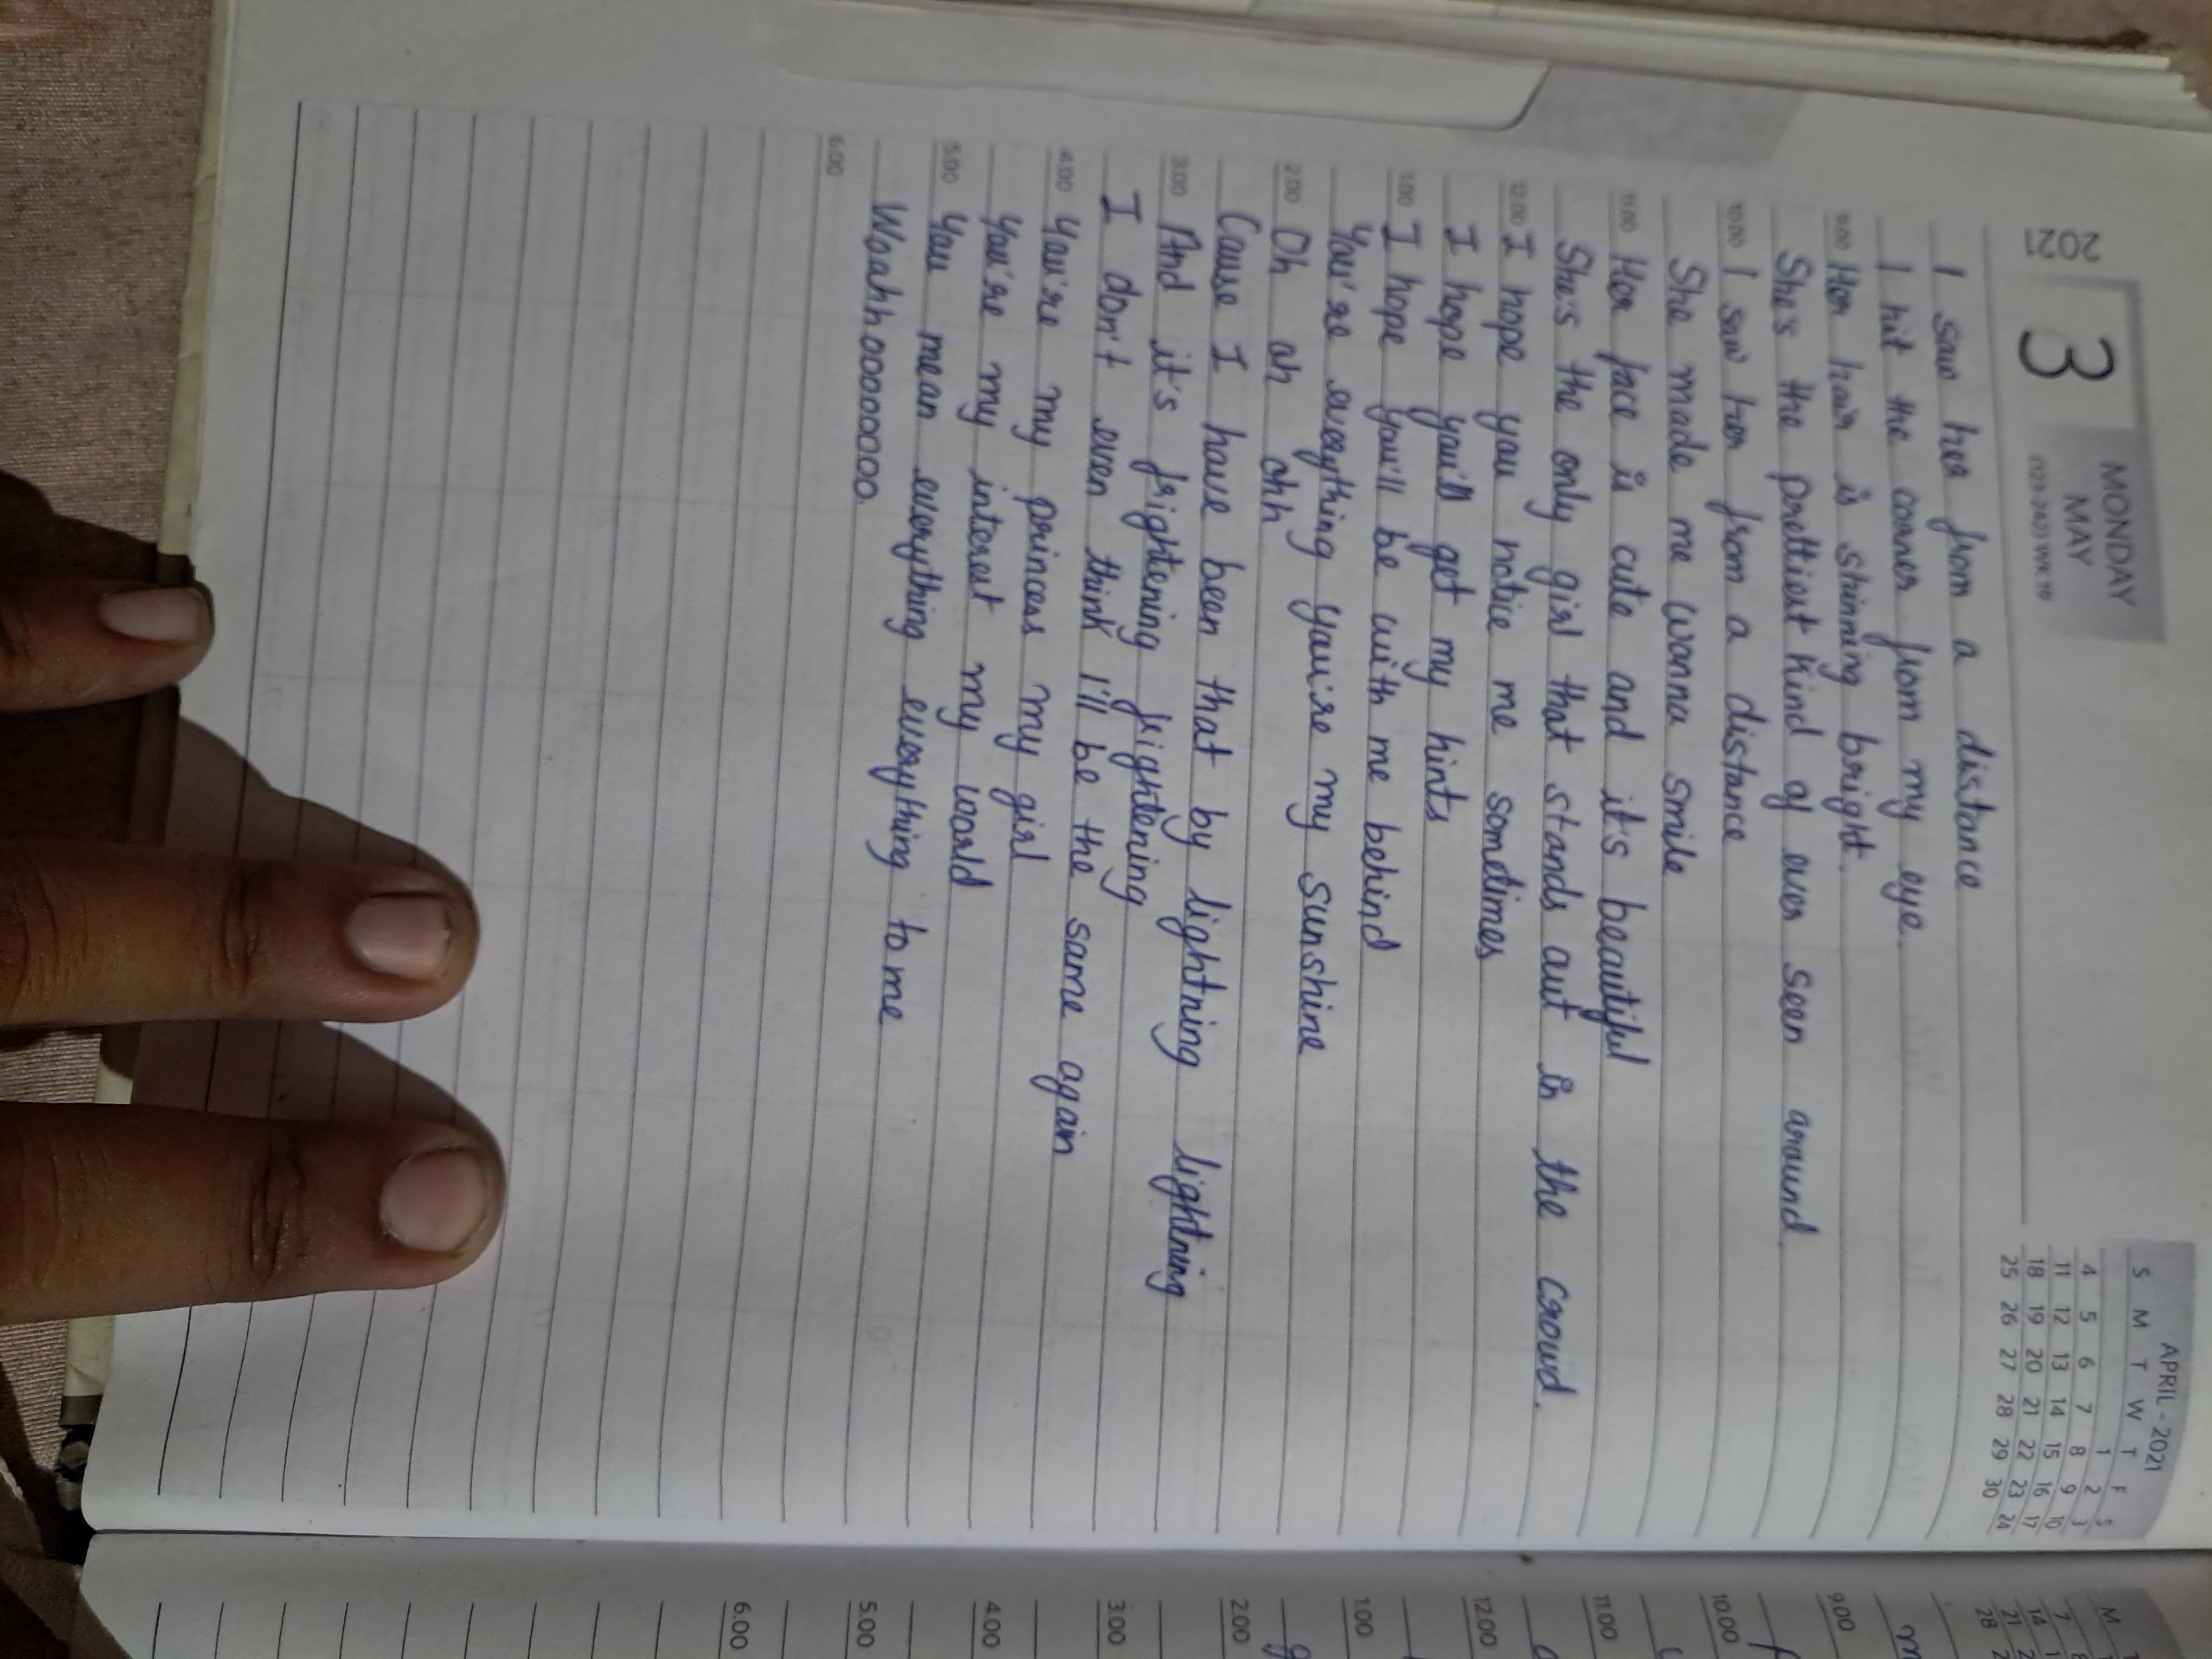 2021
3
MONDAY
MAY
(123-242) WK 19
APRIL - 2021
S M T W T F S
1 2 3
4 5 6 7 8 9 10
11 12 13 14 15 16 17
18 19 20 21 22 23 24
25 26 27 28 29 30
I saw her from a distance
I hit the corner from my eye.
9.00 Her hair is shining bright.
She's the prettiest kind of ever seen around.
10.00 I saw her from a distance
She made me wanna smile
11.00 Her face is cute and it's beautiful
She's the only girl that stands out in the crowd.
12.00 I hope you notice me sometimes
I hope you'll get my hints
1.00 I hope you'll be with me behind
You're everything you're my sunshine
2.00 Oh oh ohh
Cause I have been that by lightning lightning
3.00 And it's frightening frightening
I don't even think I'll be the same again
4.00 You're my princess my girl
You're my interest my world
5.00 You mean everything everything to me
Woahhooooooooo.
6.00
M
7
14
21
28
9.00
10.00
11.00
12.00
1.00
2.00
3.00
4.00
5.00
6.00